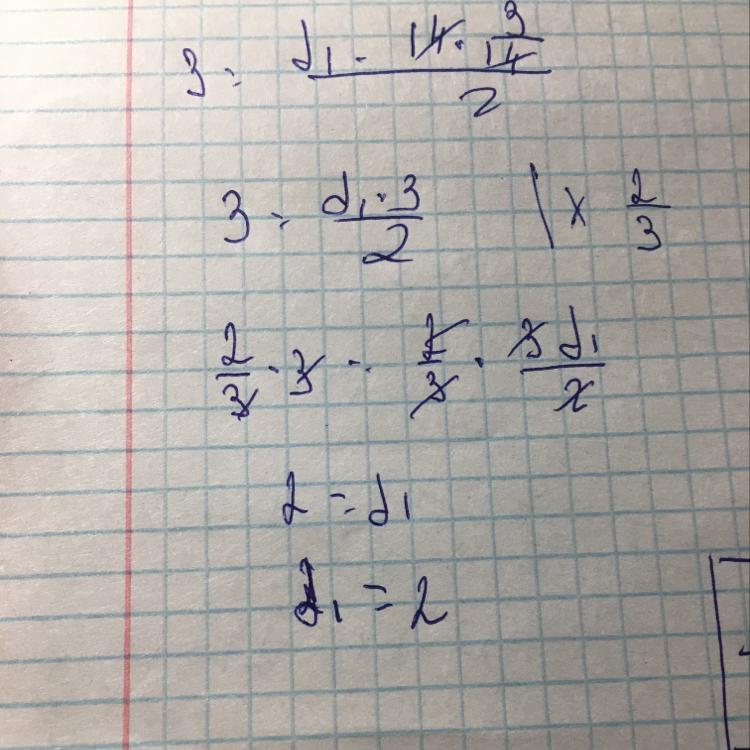 3 = d₁ · 14 · 3/14 / 2
3 = d₁ · 3 / 2 | × 2/3
2/3 · 3 = 2/3 · 3d₁/2
2 = d₁
d₁ = 2